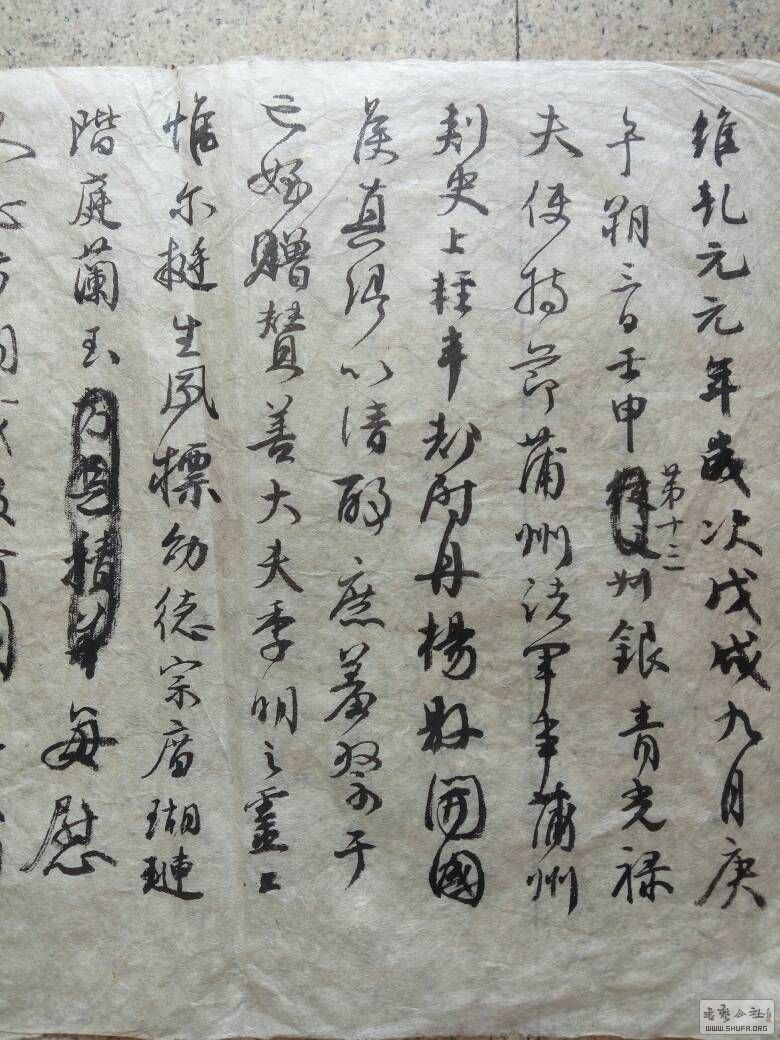 維乾元元年歲次戊戌九月庚
午朔三日壬申
第十三
叔銀青光禄
夫使持節蒲州諸軍事蒲州
刾史上輕車都尉丹楊縣開國
侯真卿以清酌庶羞祭于
亡姪贈贊善大夫季明之靈曰
惟尔挺生夙標幼德宗廟瑚璉
階庭蘭玉
每慰
書藝公社
WWW.SHUFA.ORG